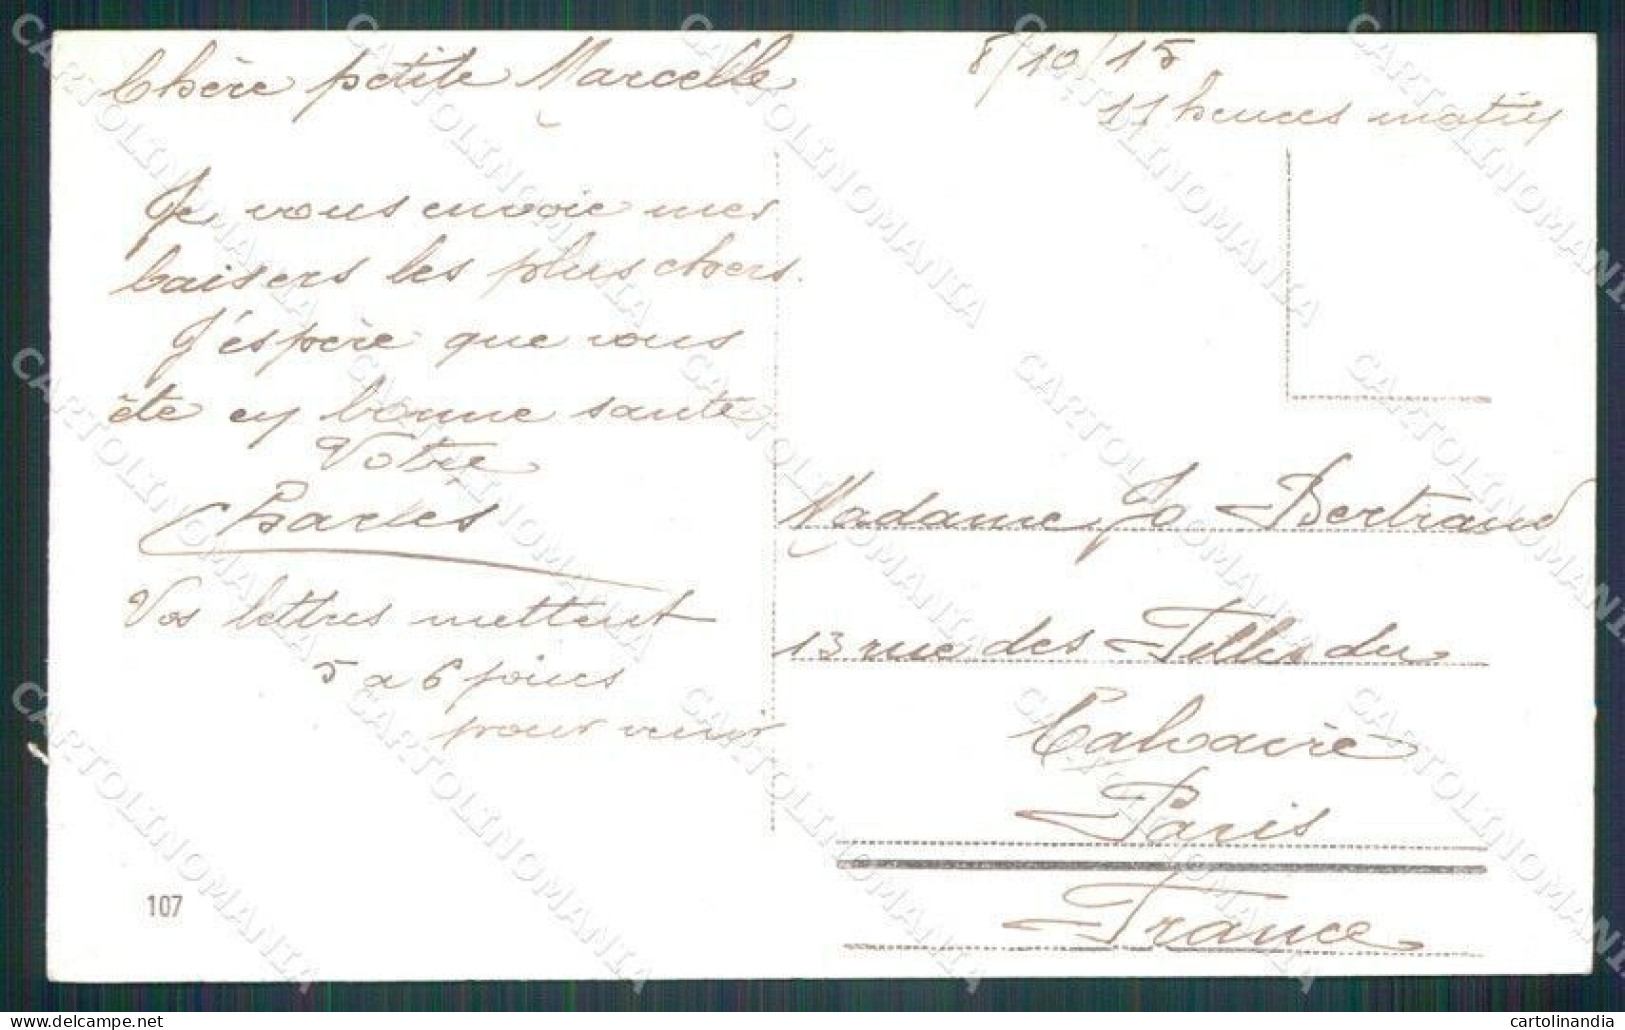 Chère petite Marcelle
8/10/15
11 heures matin
Je vous envoie mes
baisers les plus chers.
J'éspère que vous
ête en bonne santé
Votre
Charles
Vos lettres mettent
5 a 6 jours
pour venir
Madame Jo Bertrand
13 rue des Filles du
Calvaire
Paris
France
107
delcampe.net
cartolinandia